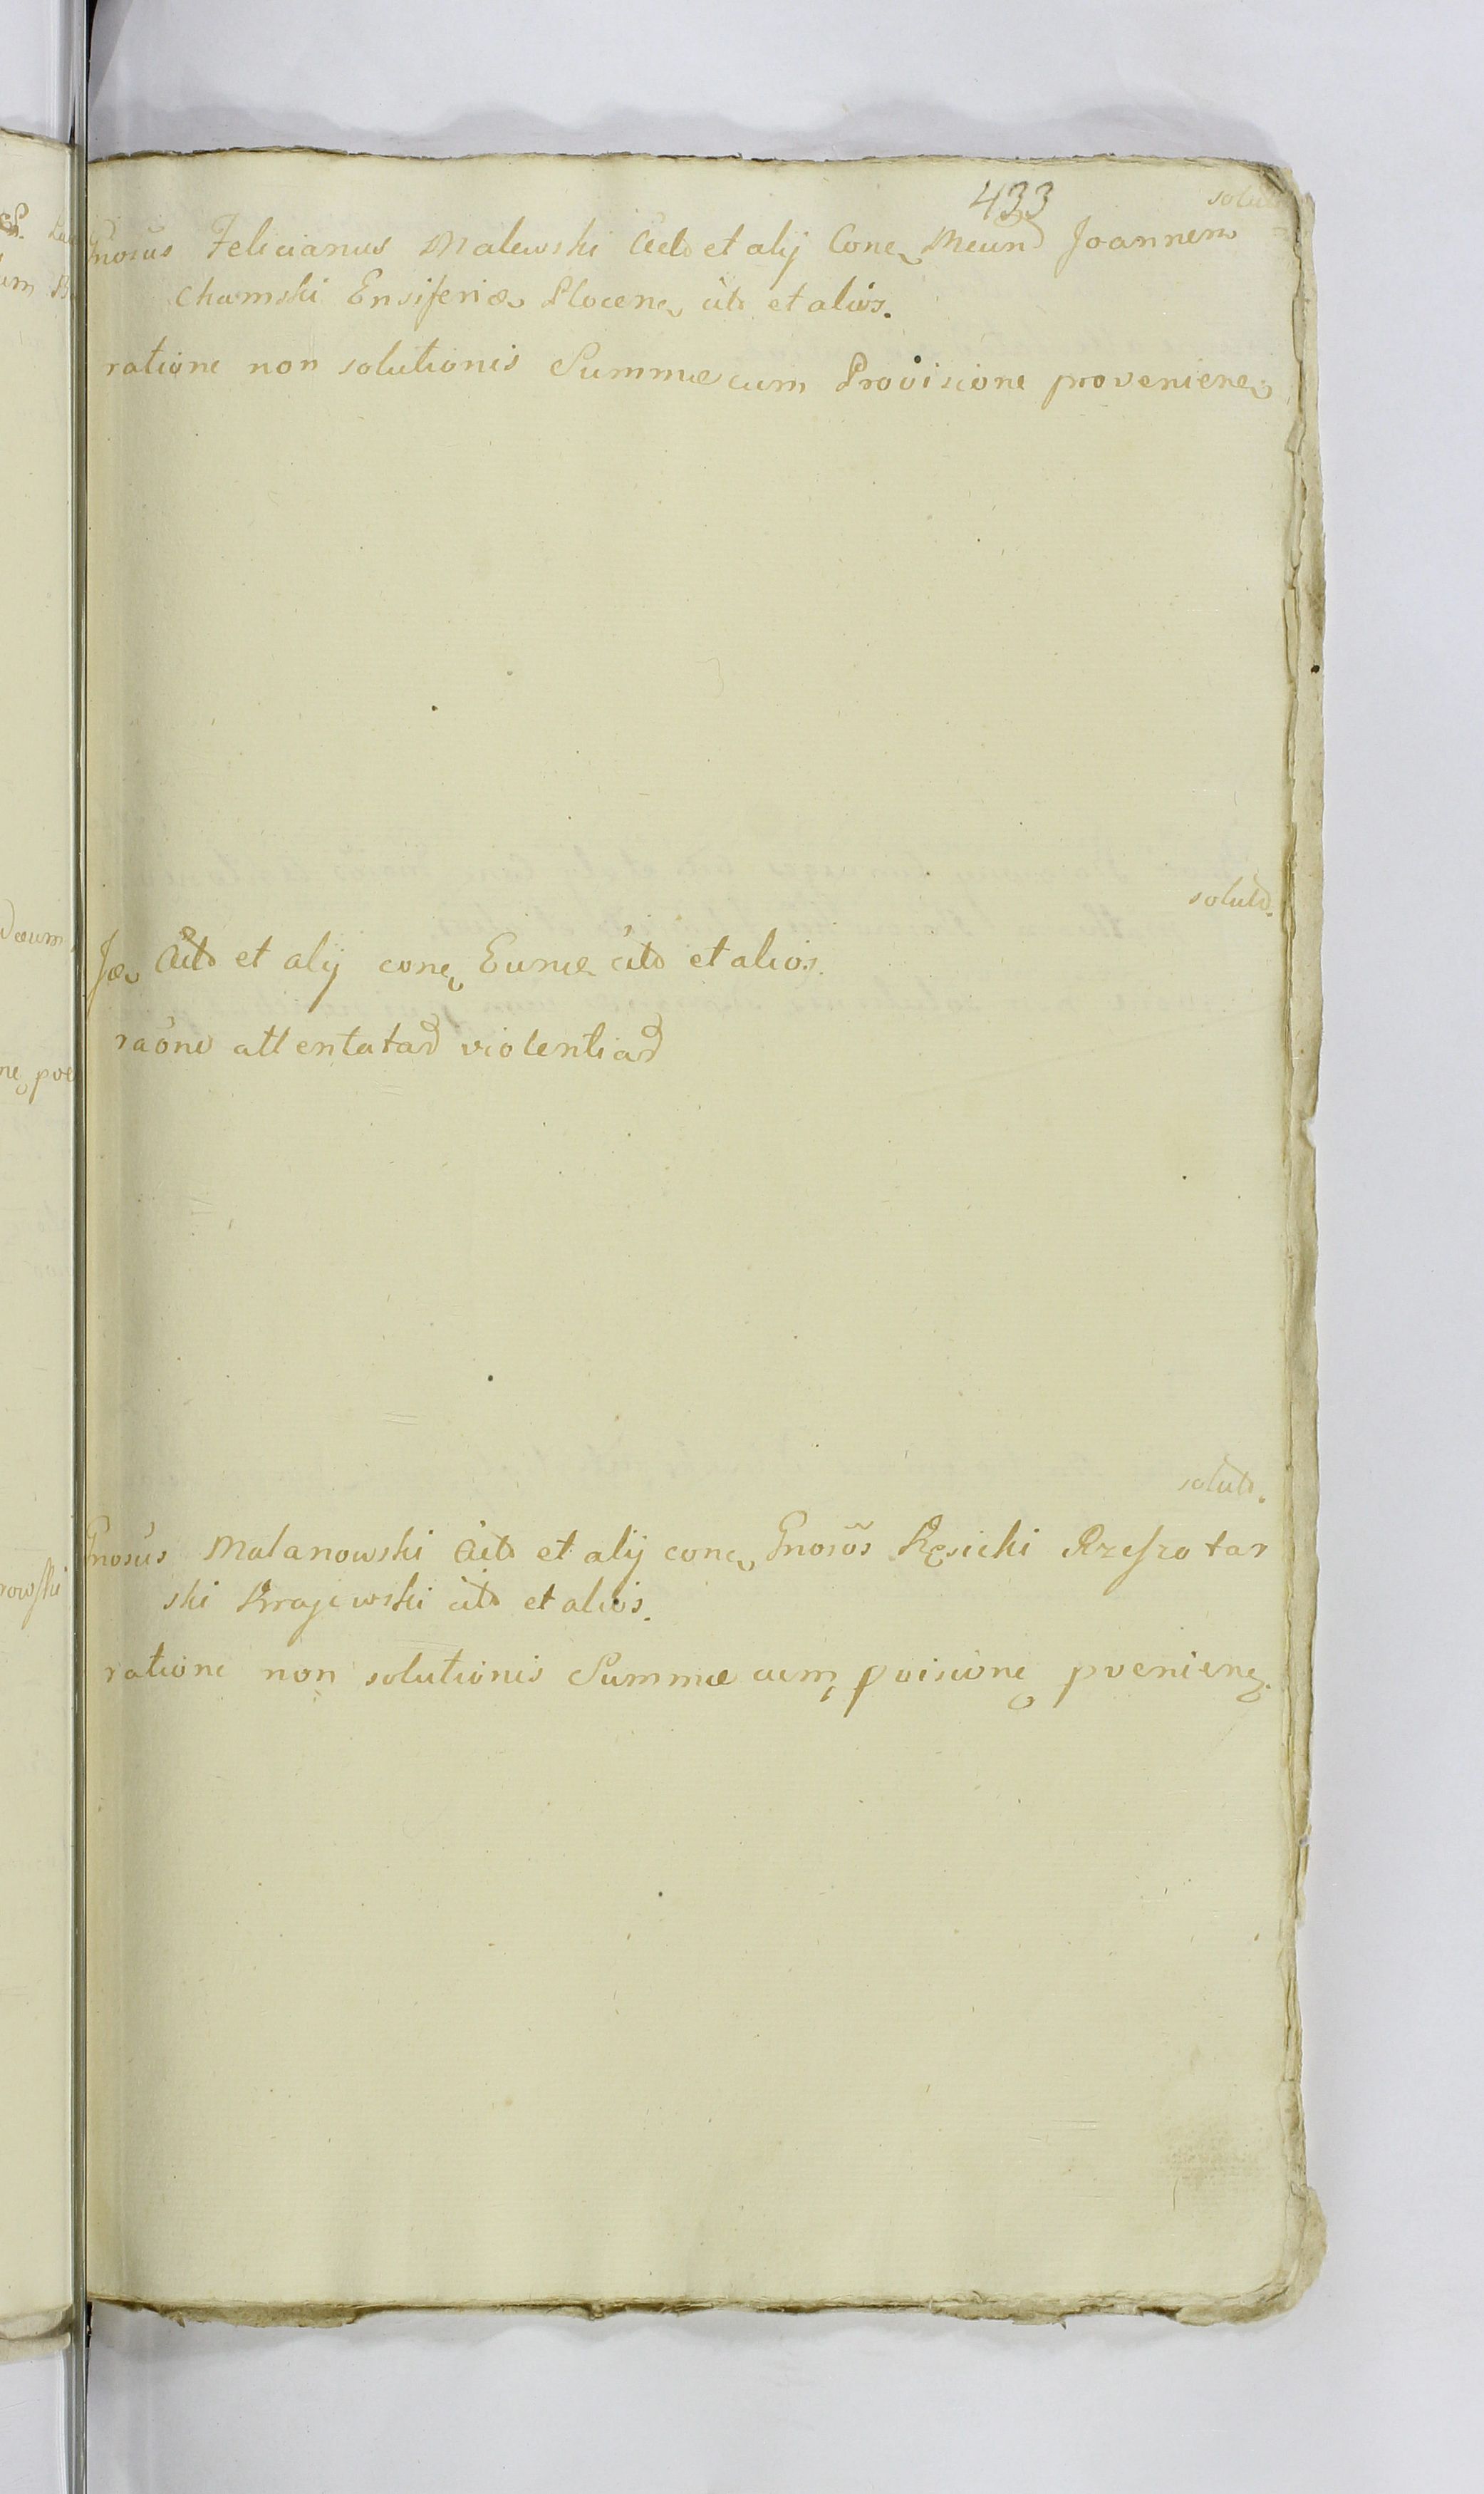 433
solut
Gnosus Felicianus Malewski Act et alij Conc Meund Joannem
Chamski Ensiferiæ Plocenc cit et alios.
ratione non solutionis Summæ cum Provisione provenienc
solut.
Jæ Act et alij conc Eunde cit et alios.
raõne attentatar violentiar
solut.
Gnosus Malanowski Act et alij conc Gnosõs Kęsicki Rzeszotar
ski Krajewski cit et alios.
ratione non solutionis Summæ cum pvisione pvenienc.